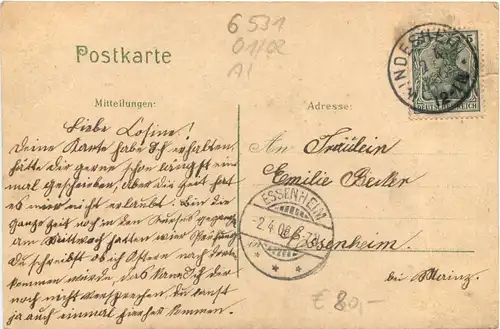 6531
01/02
A1
Postkarte
WINDESHEIM
5
DEUTSCHES REICH
Mitteilungen:
Adresse:
Liebe Cosine!
Deine Karte habe Ich erhalten
hätte dir gerne schon längst ein
mal geschrieben, Aber die Zeit hat
es mir nicht erlaubt. Bin die
Ganze Zeit noch in den
am hatten wir Prüfung
Du schreibst ob ich Ostern nach
kommen würde, das Kann Ich dir
noch nicht versprechen. du kannst
ja auch einmal hierher kommen.
An Fräulein
Emilie Becker
Essenheim.
bei Mainz.
ESSENHEIM
-2.4.08 6-7N
€ 80,-